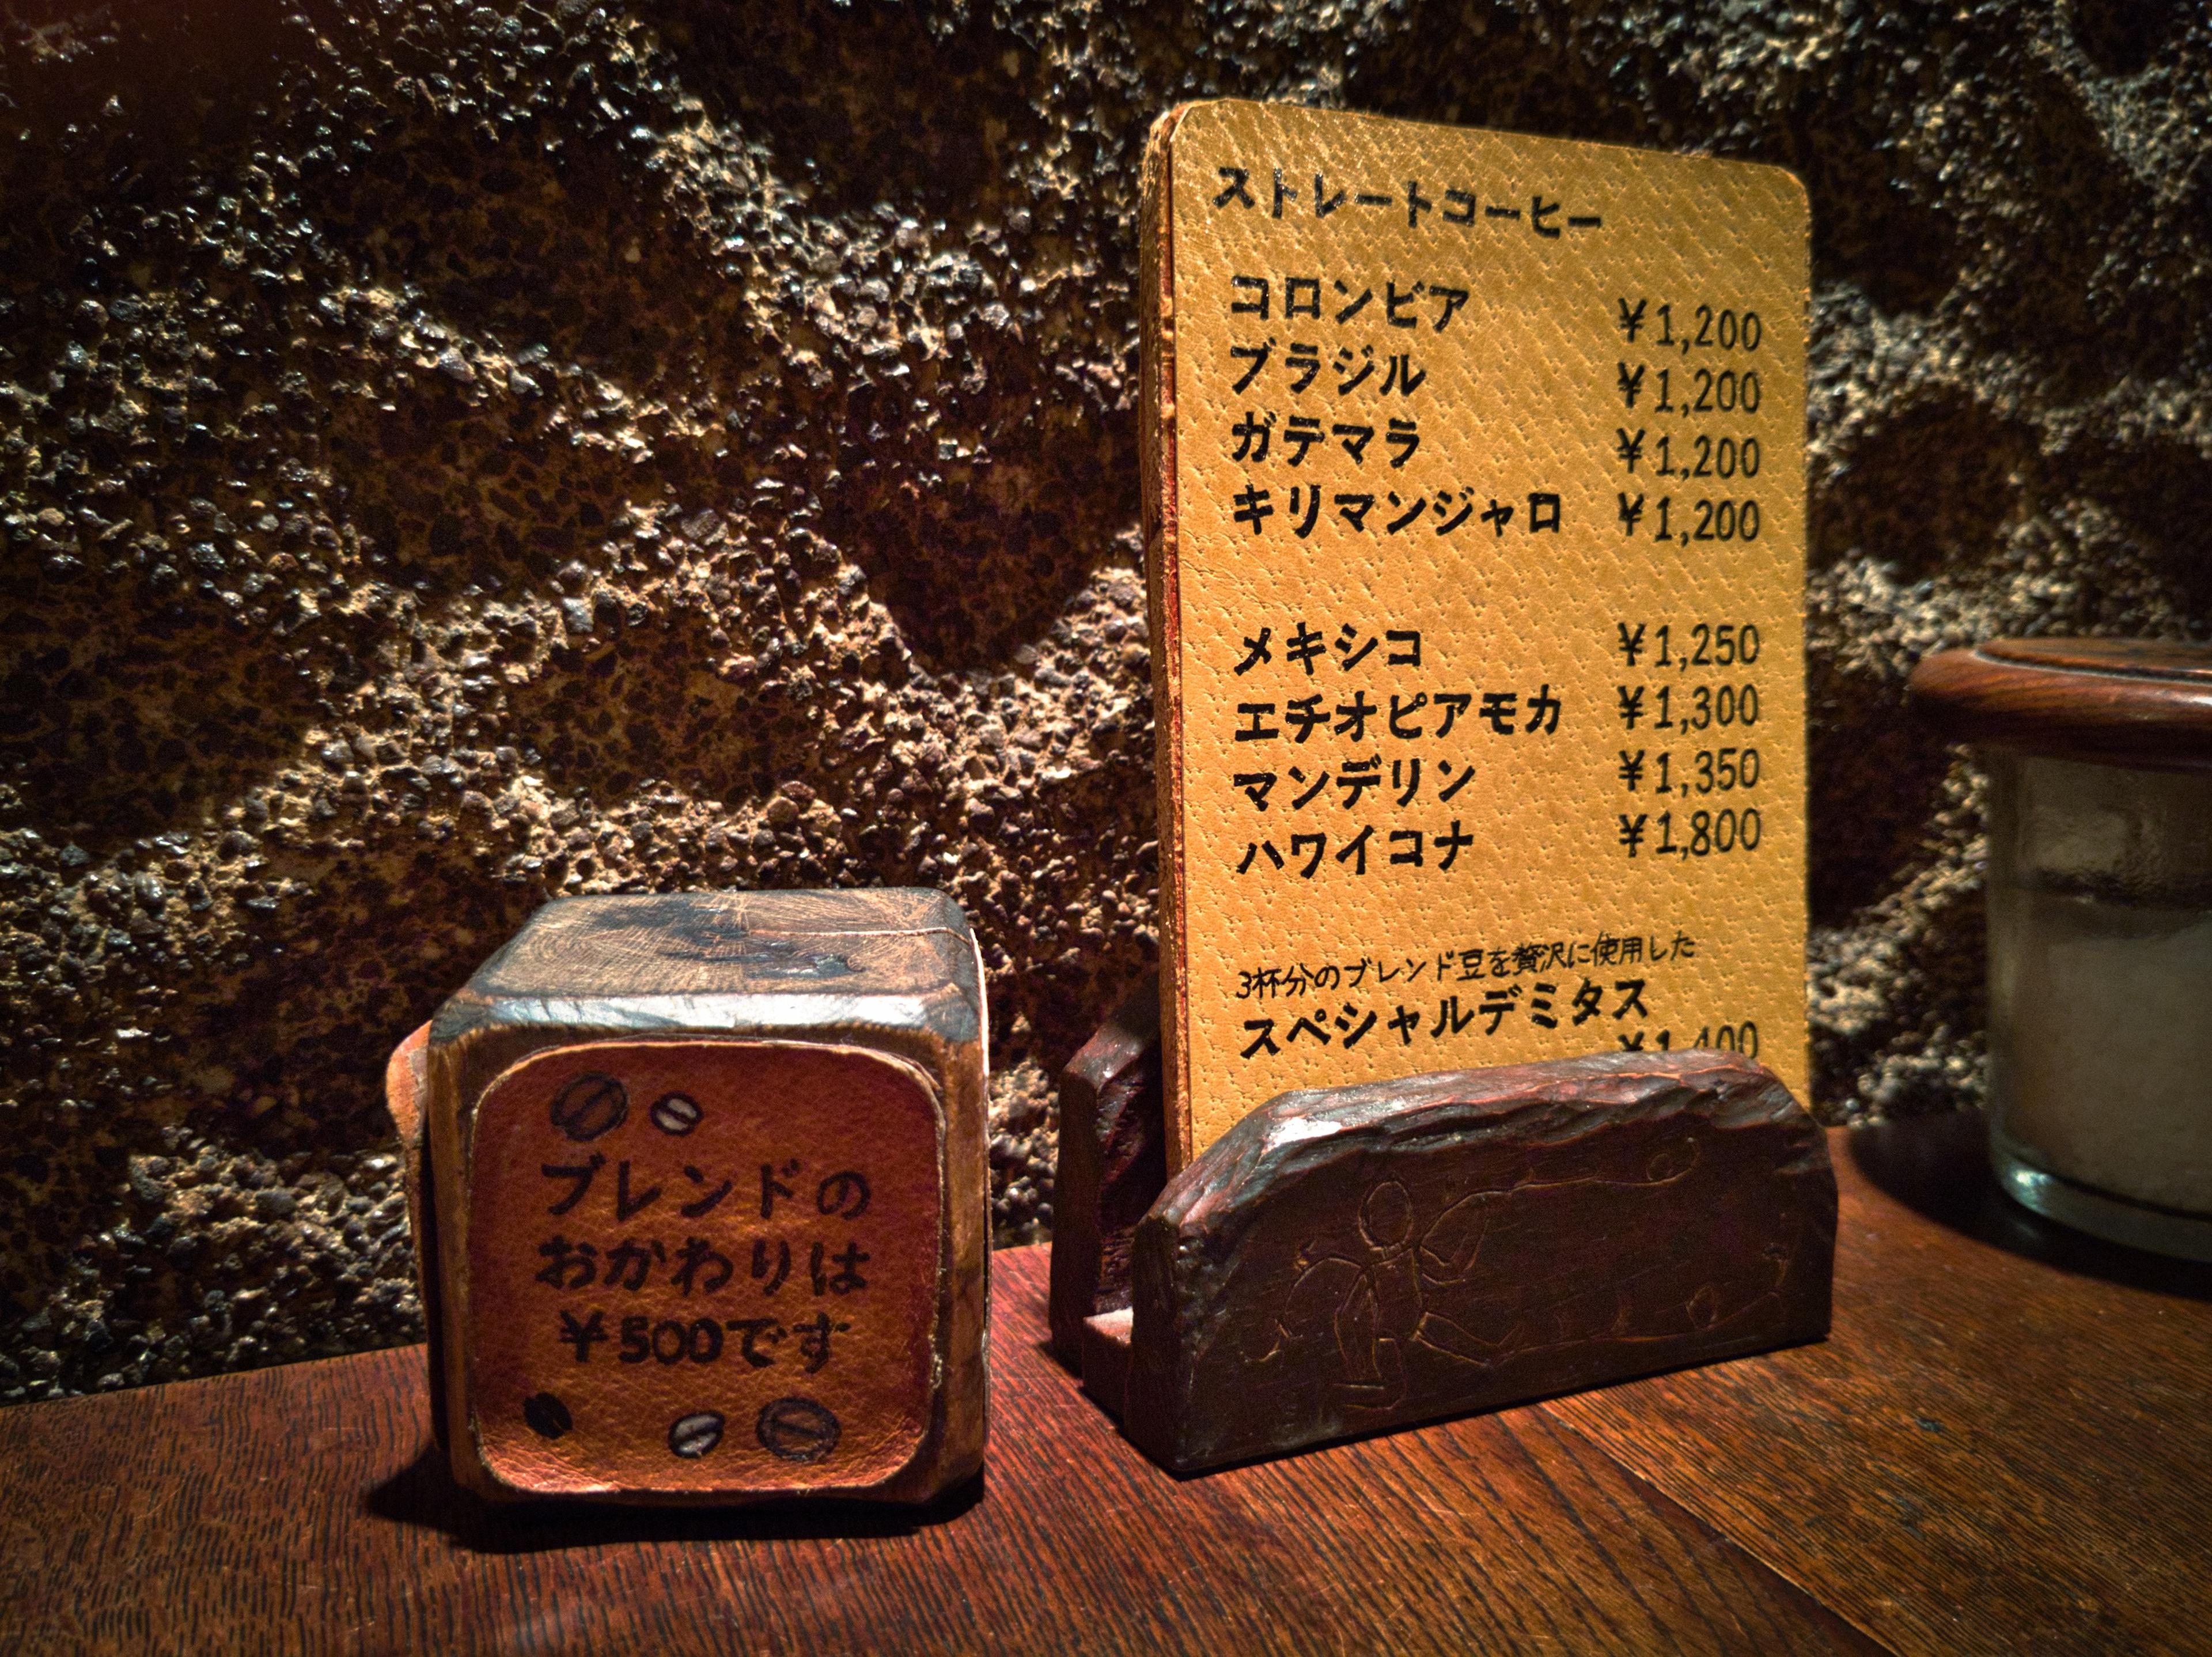 ストレートコーヒー
コロンビア ¥1,200
ブラジル ¥1,200
ガテマラ ¥1,200
キリマンジャロ ¥1,200
メキシコ ¥1,250
エチオピアモカ ¥1,300
マンデリン ¥1,350
ハワイコナ ¥1,800
3杯分のブレンド豆を贅沢に使用した
スペシャルデミタス
¥1,400
ブレンドの
おかわりは
¥500です